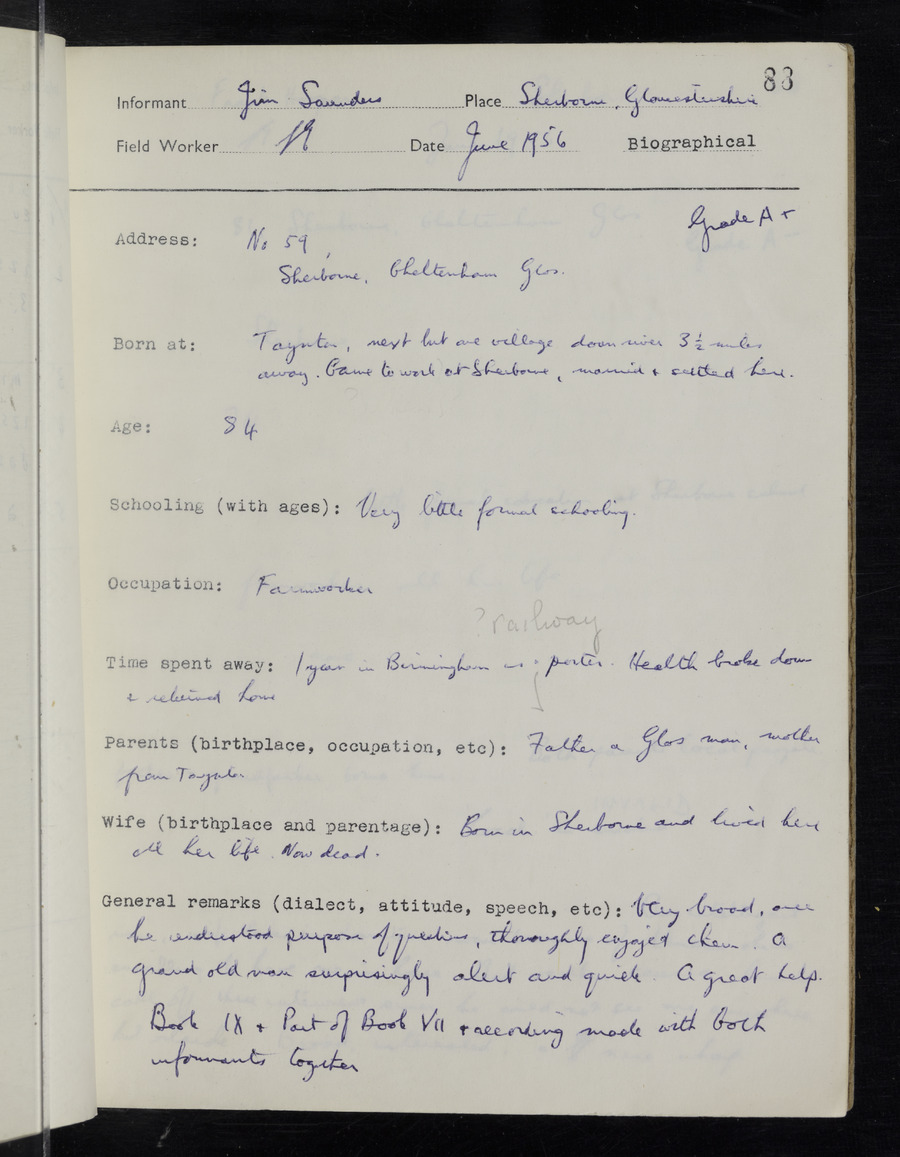 83
Informant Jim Saunders Place Sherborne, Gloucestershire
Field Worker Date June 1956 Biographical
Grade A+
Address: No 59,
Sherborne, Cheltenham Glos.
Born at: Taynton, next but one village down river 3½ miles
away. Came to work at Sherborne, married + settled here.
Age: 84
Schooling (with ages): Very little formal schooling.
Occupation: Farmworker
? railway
Time spent away: 1 year in Birmingham as porter. Health broke down
& returned home
Parents (birthplace, occupation, etc): Father a Glos man, mother
from Taynton.
Wife (birthplace and parentage): Born in Sherborne and lived here
all her life. Now dead.
General remarks (dialect, attitude, speech, etc): Very broad, once
he understood purpose of questions, thoroughly enjoyed them. A
grand old man surprisingly alert and quick. A great help.
Book IX + Part of Book VII + recording made with both
informants together